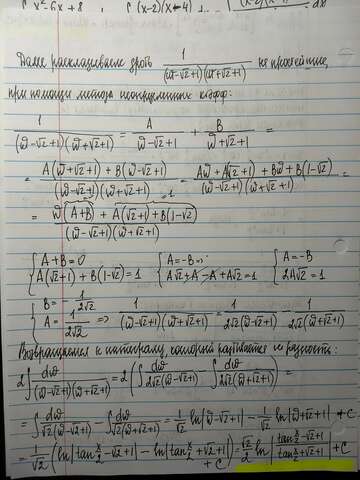 ∫ x²-6x+8 , ∫ (x-2)(x-4) dx
Далее раскладываем дробь 1/((ω-√2+1)(ω+√2+1)) на простейшие,
при помощи метода неопределенных коэфф:
1/((ω-√2+1)(ω+√2+1)) = A/(ω-√2+1) + B/(ω+√2+1) =
= (A(ω+√2+1) + B(ω-√2+1))/((ω-√2+1)(ω+√2+1)) = (Aω+A√2+1) + Bω+B(1-√2))/((ω-√2+1)(ω+√2+1)) =
= (ω(A+B) + A(√2+1)+B(1-√2))/((ω-√2+1)(ω+√2+1))
{A+B=0 {A=-B {A=-B
{A(√2+1)+B(1-√2)=1 {A√2+A-A+A√2=1 {2A√2=1
{B=-1/2√2
{A=1/2√2 => 1/((ω-√2+1)(ω+√2+1)) = 1/(2√2(ω-√2+1)) - 1/(2√2(ω+√2+1))
Возвращаемся к интегралу, который разбивается на разность:
2∫dω/((ω-√2+1)(ω+√2+1)) = 2(∫dω/(2√2(ω-√2+1)) - ∫dω/(2√2(ω+√2+1))) =
= ∫dω/(√2(ω-√2+1)) - ∫dω/(√2(ω+√2+1)) = 1/√2 ln|ω-√2+1| - 1/√2 ln|ω+√2+1| + C
= 1/√2 (ln|tan x/2 -√2+1| - ln|tan x/2 +√2+1|) + C = √2/2 ln|(tan x/2 -√2+1)/(tan x/2 +√2+1)| + C